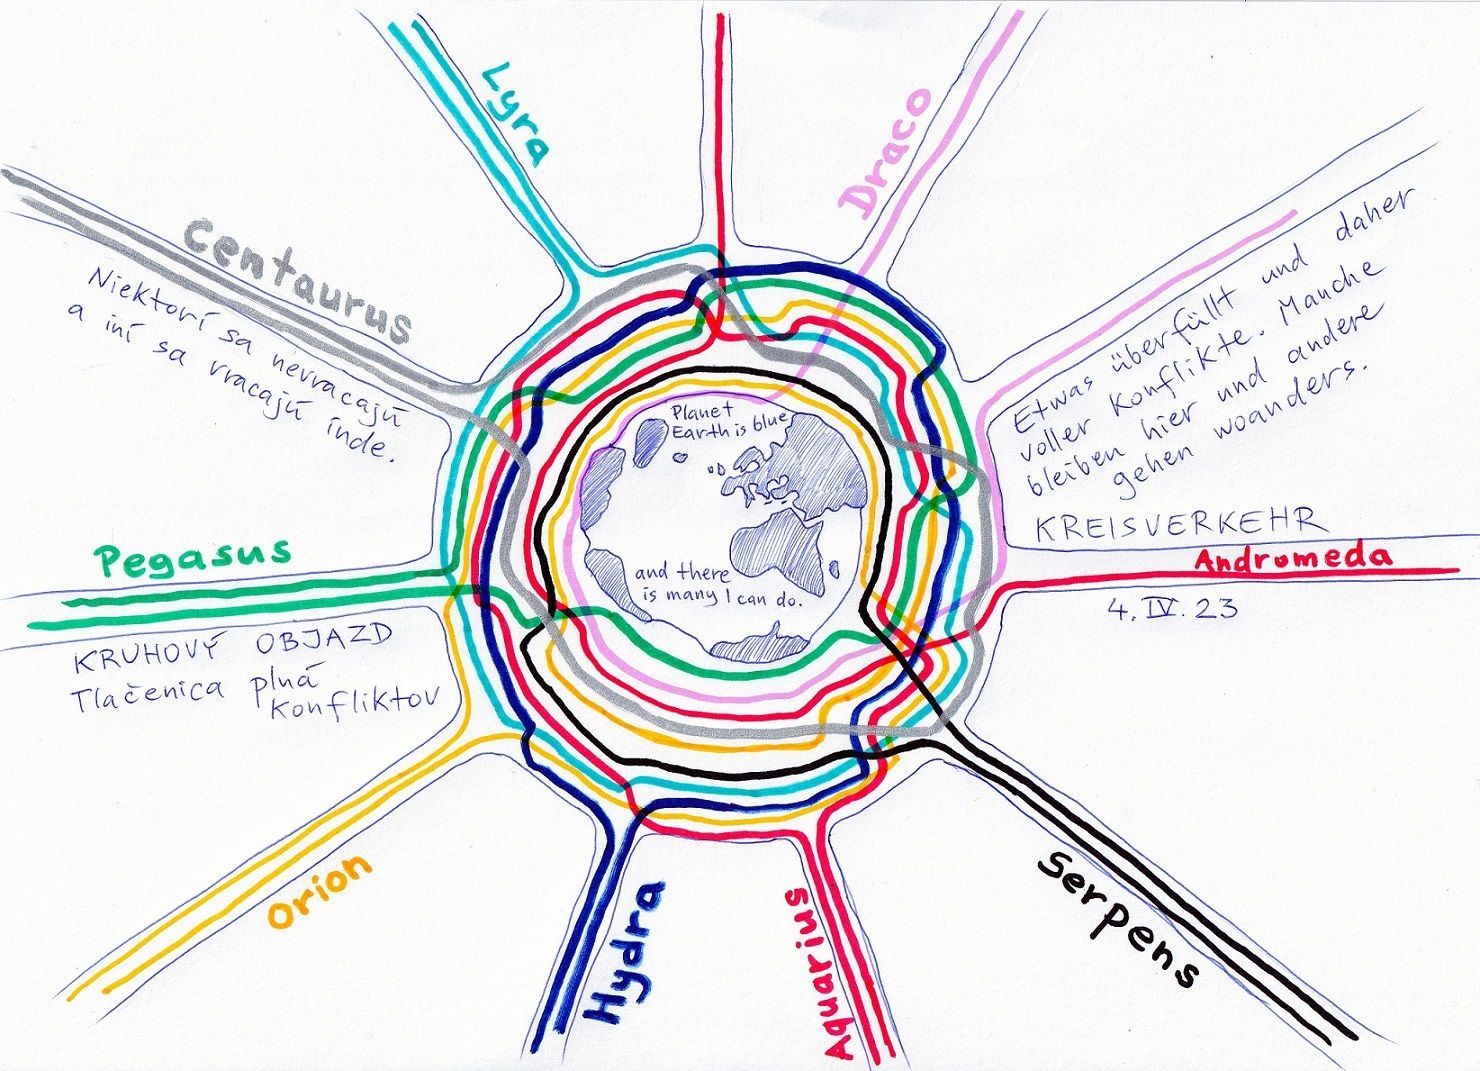 Lyra
Draco
Centaurus
Niektorí sa nevracajú
a iní sa vracajú inde.
Planet
Earth is blue
and there
is many I can do.
Etwas überfüllt und daher
voller Konflikte. Manche
bleiben hier und andere
gehen woanders.
KREISVERKEHR
Andromeda
4. IV. 23
Pegasus
KRUHOVÝ OBJAZD
Tlačenica plná
Konfliktov
Orion
Hydra
Aquarius
Serpens